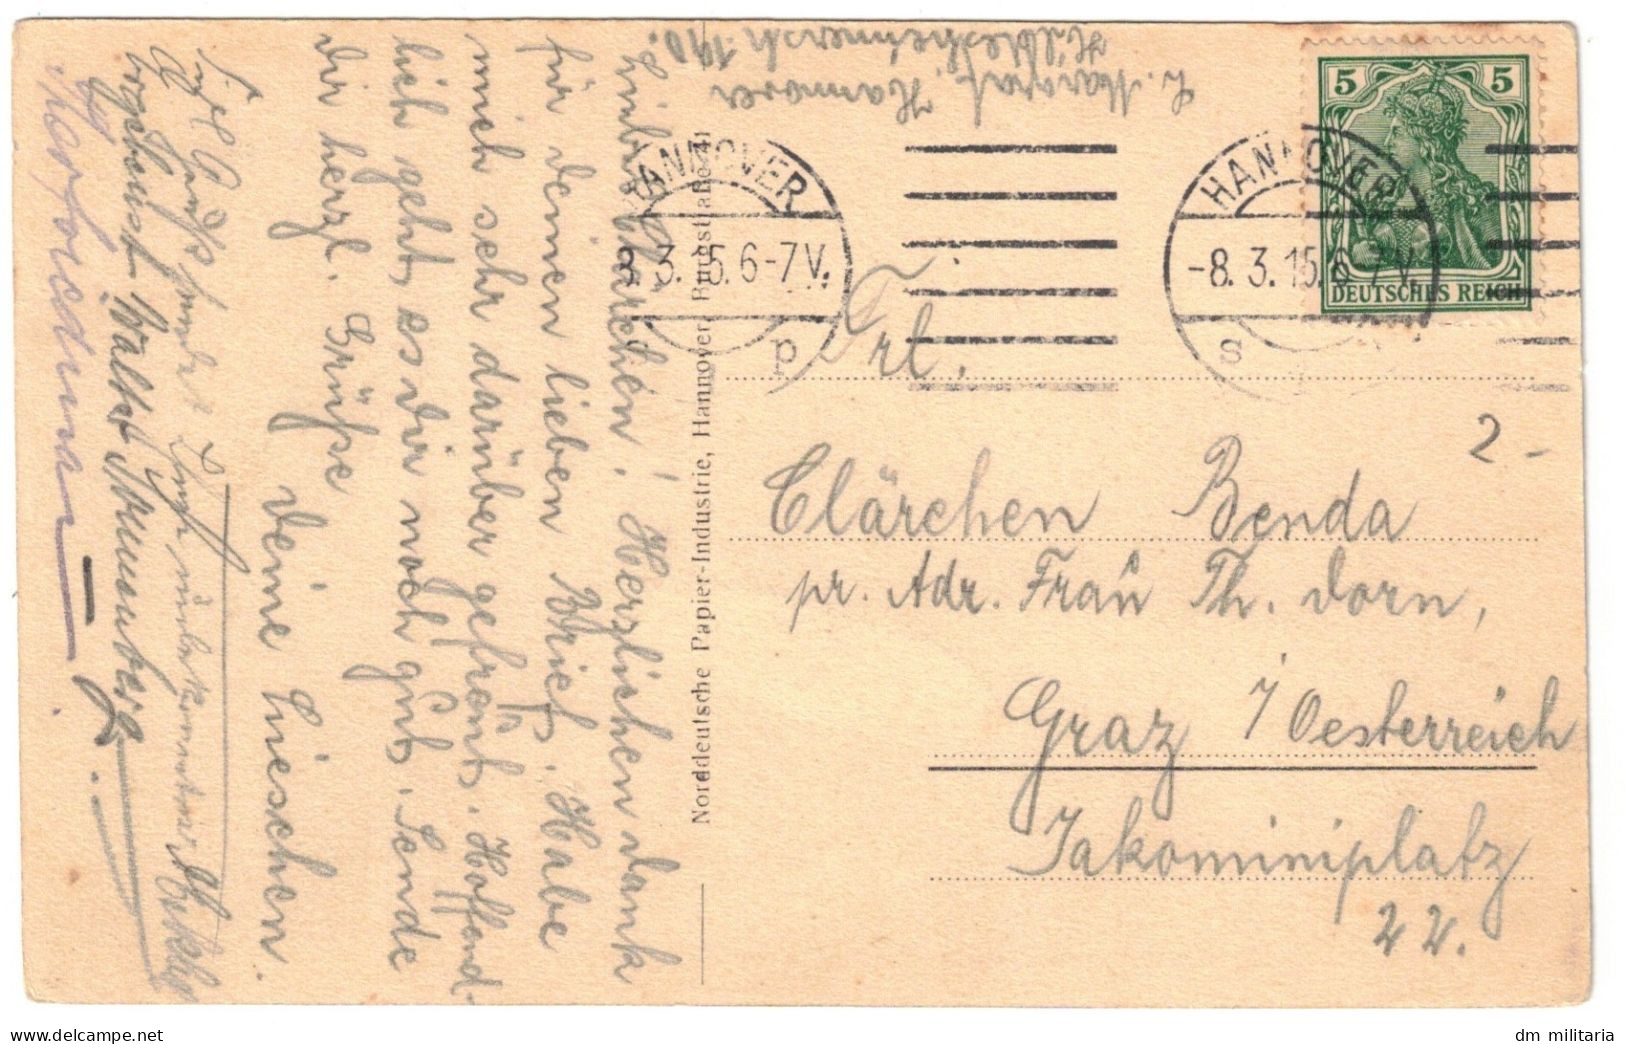 L. Marwat. Hannover
Hildesheimerstr. 190.
Liebes Clärchen! Herzlichen Dank
für deinen lieben Brief. Habe
mich sehr darüber gefreut. Hoffend-
lich geht es dir noch gut. Sende
dir herzl. Grüße
deine Lieschen.
Viel Grüße sendet
unbekannterweise
Walter
Norddeutsche Papier-Industrie, Hannover,
HANNOVER
8.3.15.6-7V.
p
HANNOVER
-8.3.15.6-7V.
s
5 5
DEUTSCHES REICH
2 -
Frl.
Clärchen Benda
pr. Adr. Frau Th. Dorn,
Graz i/Oesterreich
Jakominiplatz
22.
dm_militaria